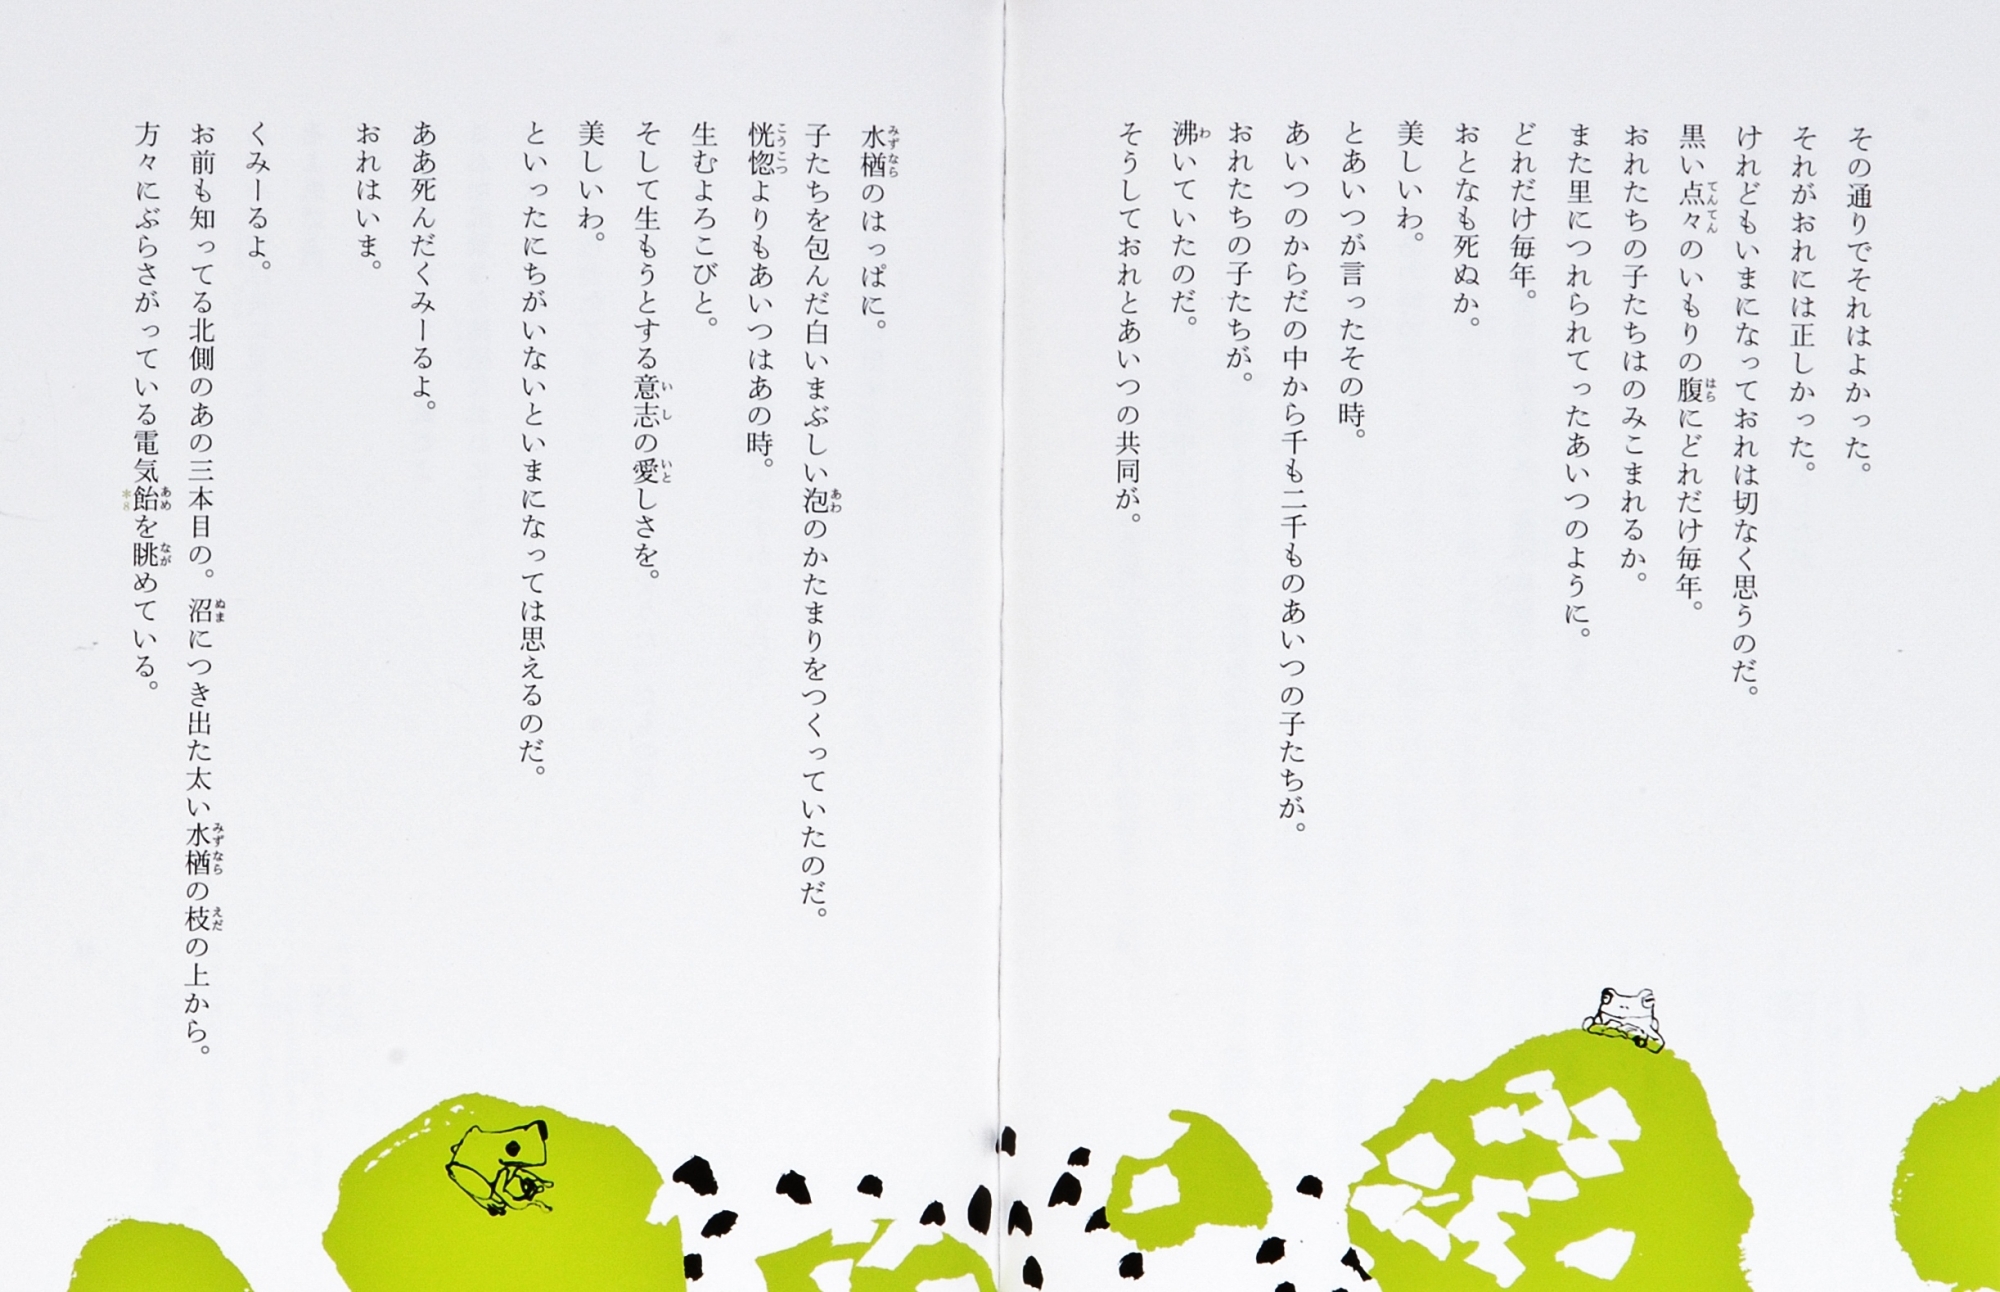 その通りでそれはよかった。
それがおれには正しかった。
けれどもいまになっておれは切なく思うのだ。
黒い点々のいもりの腹にどれだけ毎年。
おれたちの子たちはのみこまれるか。
また里につれられてったあいつのように。
どれだけ毎年。
おとなも死ぬか。
美しいわ。
とあいつが言ったその時。
あいつのからだの中から千も二千ものあいつの子たちが。
おれたちの子たちが。
沸いていたのだ。
そうしておれとあいつの共同が。
水楢のはっぱに。
子たちを包んだ白いまぶしい泡のかたまりをつくっていたのだ。
恍惚よりもあいつはあの時。
生むよろこびと。
そして生もうとする意志の愛しさを。
美しいわ。
といったにちがいないといまになっては思えるのだ。
ああ死んだくみーるよ。
おれはいま。
くみーるよ。
お前も知ってる北側のあの三本目の。沼につき出た太い水楢の枝の上から。
方々にぶらさがっている電気飴を眺めている。